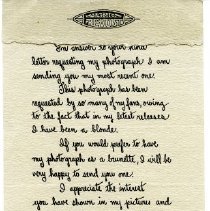 In answer to your kind
letter requesting my photograph I am
sending you my most recent one.
This photograph has been
requested by so many of my fans, owing
to the fact that in my latest releases
I have been a blonde.
If you would prefer to have
my photograph as a brunette, I will be
very happy to send you one.
I appreciate the interest
you have shown in my pictures and